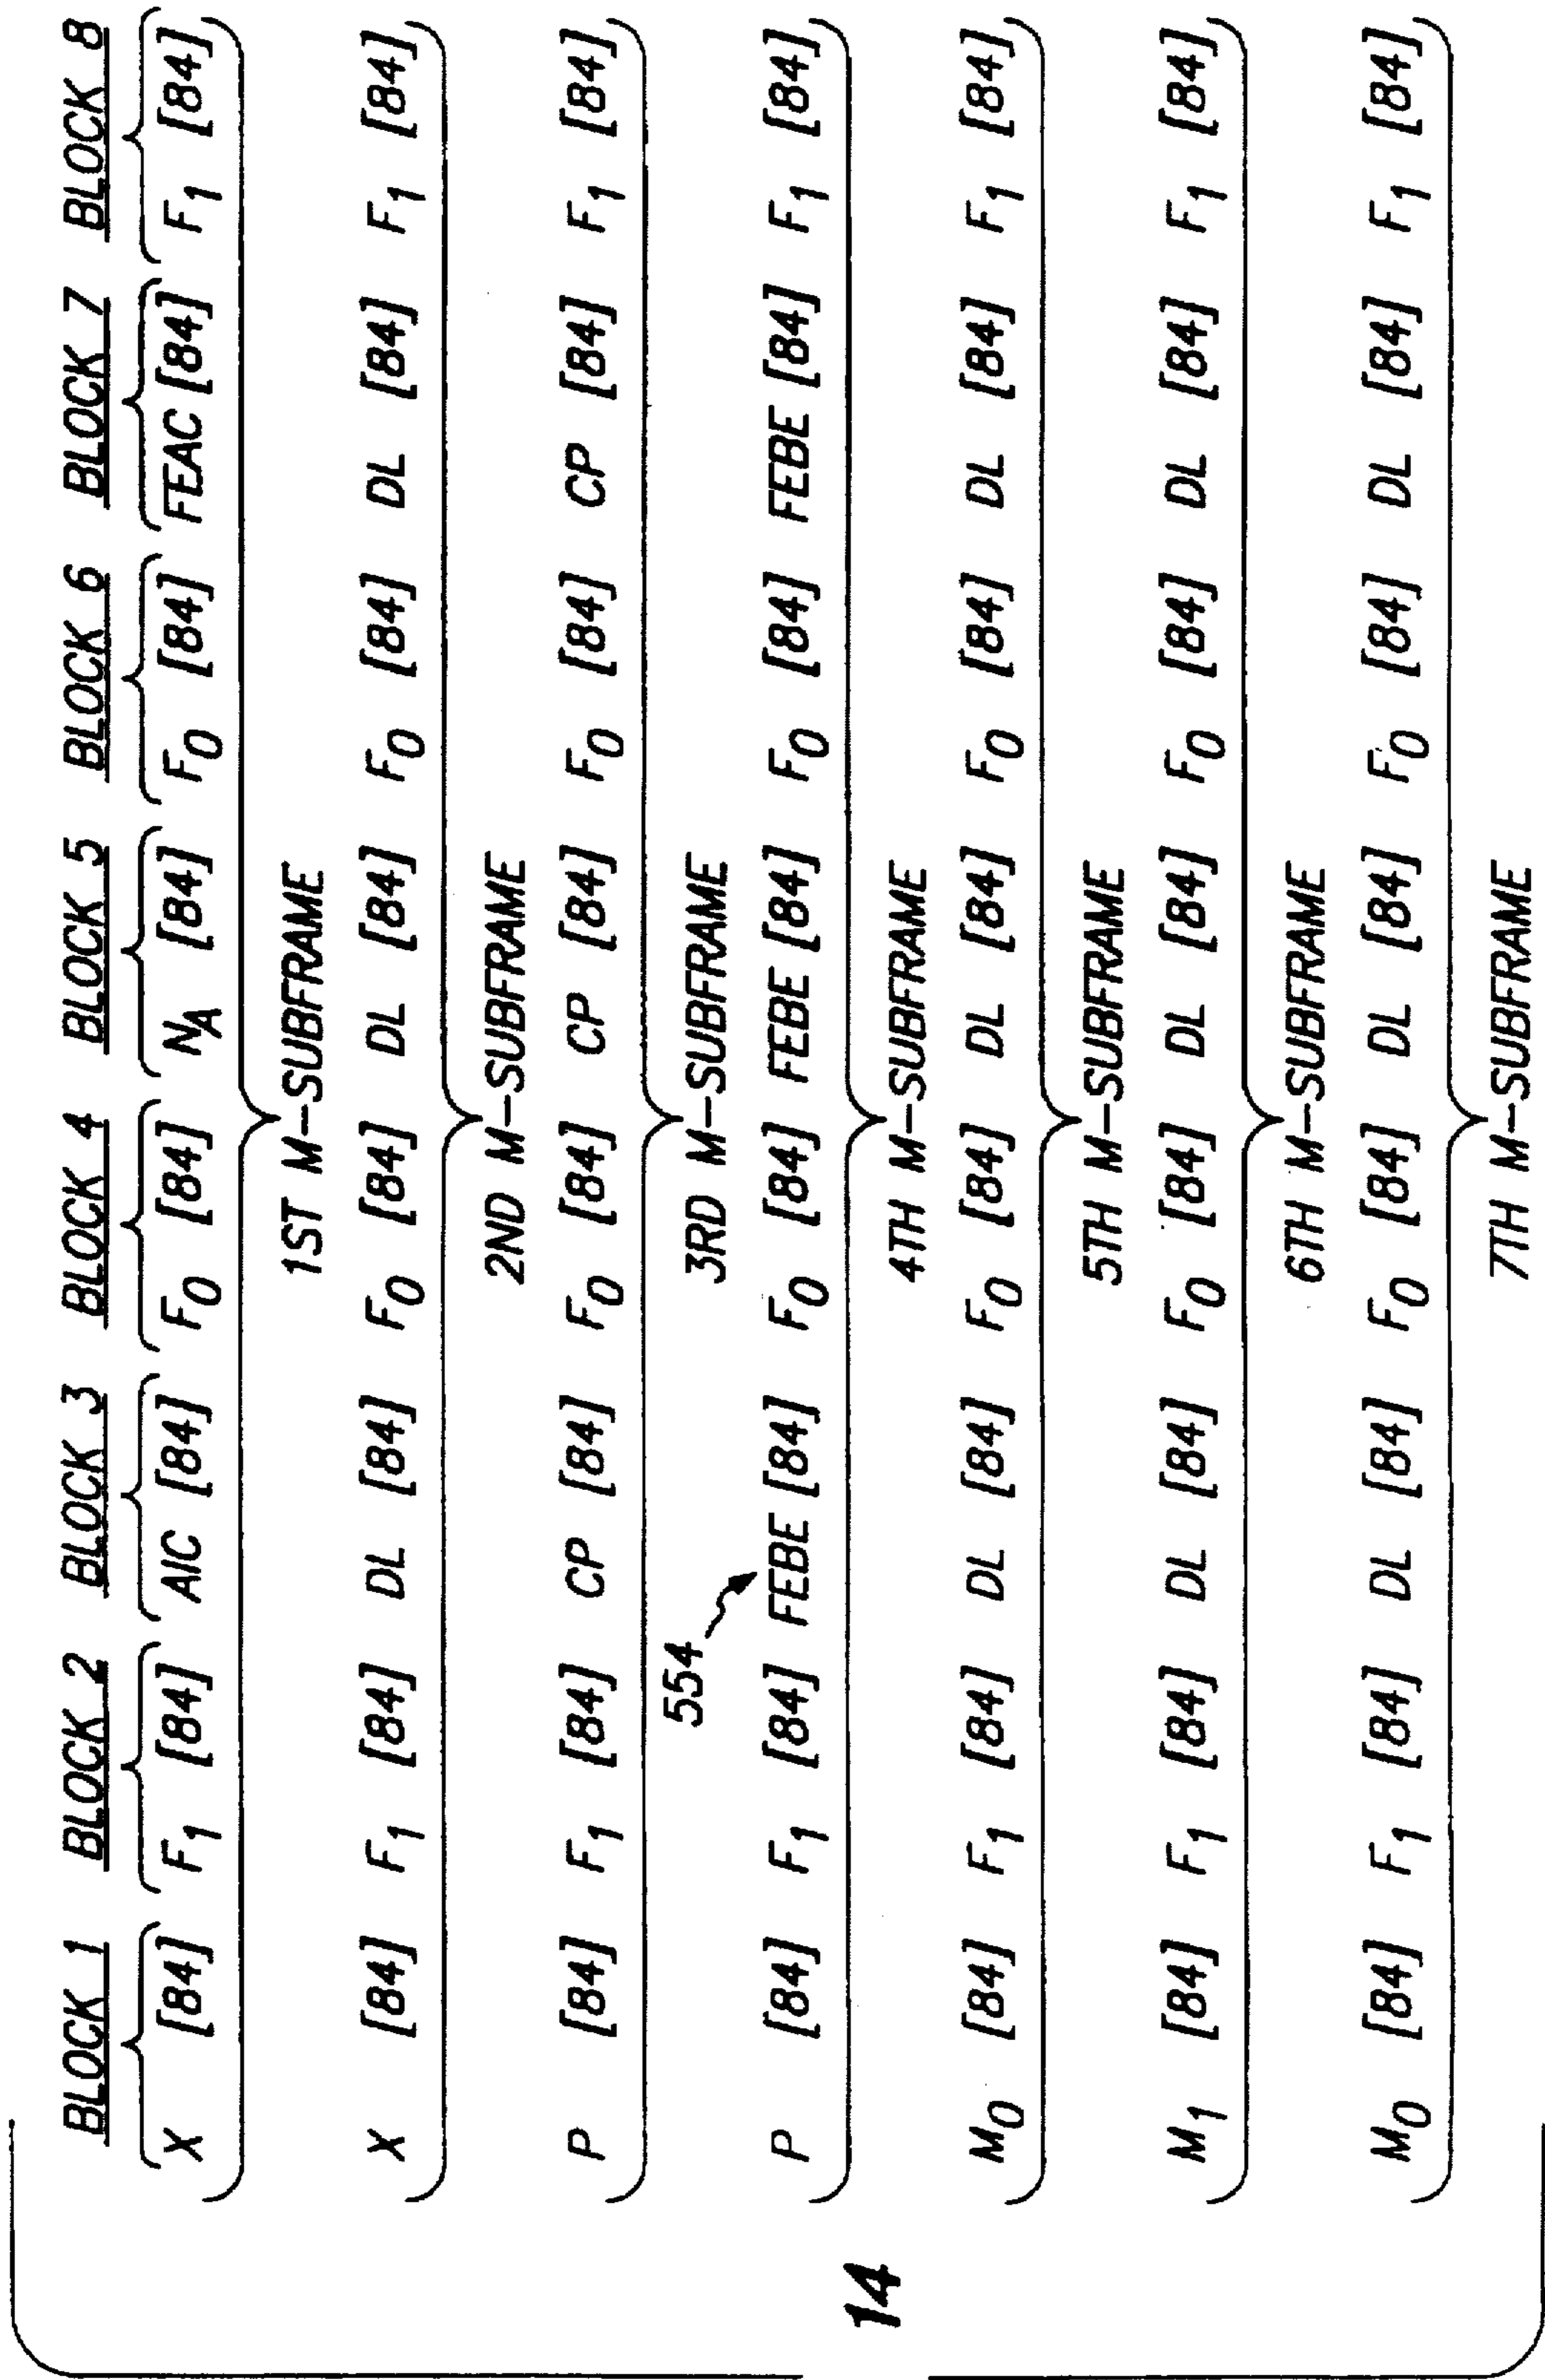 BLOCK 1 BLOCK 2 BLOCK 3 BLOCK 4 BLOCK 5 BLOCK 6 BLOCK 7 BLOCK 8
X [84] F1 [84] AIC [84] F0 [84] NA [84] F0 [84] FEAC [84] F1 [84]
1ST M-SUBFRAME
X [84] F1 [84] DL [84] F0 [84] DL [84] F0 [84] DL [84] F1 [84]
2ND M-SUBFRAME
P [84] F1 [84] CP [84] F0 [84] CP [84] F0 [84] CP [84] F1 [84]
3RD M-SUBFRAME
554
P [84] F1 [84] FEBE [84] F0 [84] FEBE [84] F0 [84] FEBE [84] F1 [84]
14
4TH M-SUBFRAME
M0 [84] F1 [84] DL [84] F0 [84] DL [84] F0 [84] DL [84] F1 [84]
5TH M-SUBFRAME
M1 [84] F1 [84] DL [84] F0 [84] DL [84] F0 [84] DL [84] F1 [84]
6TH M-SUBFRAME
M0 [84] F1 [84] DL [84] F0 [84] DL [84] F0 [84] DL [84] F1 [84]
7TH M-SUBFRAME